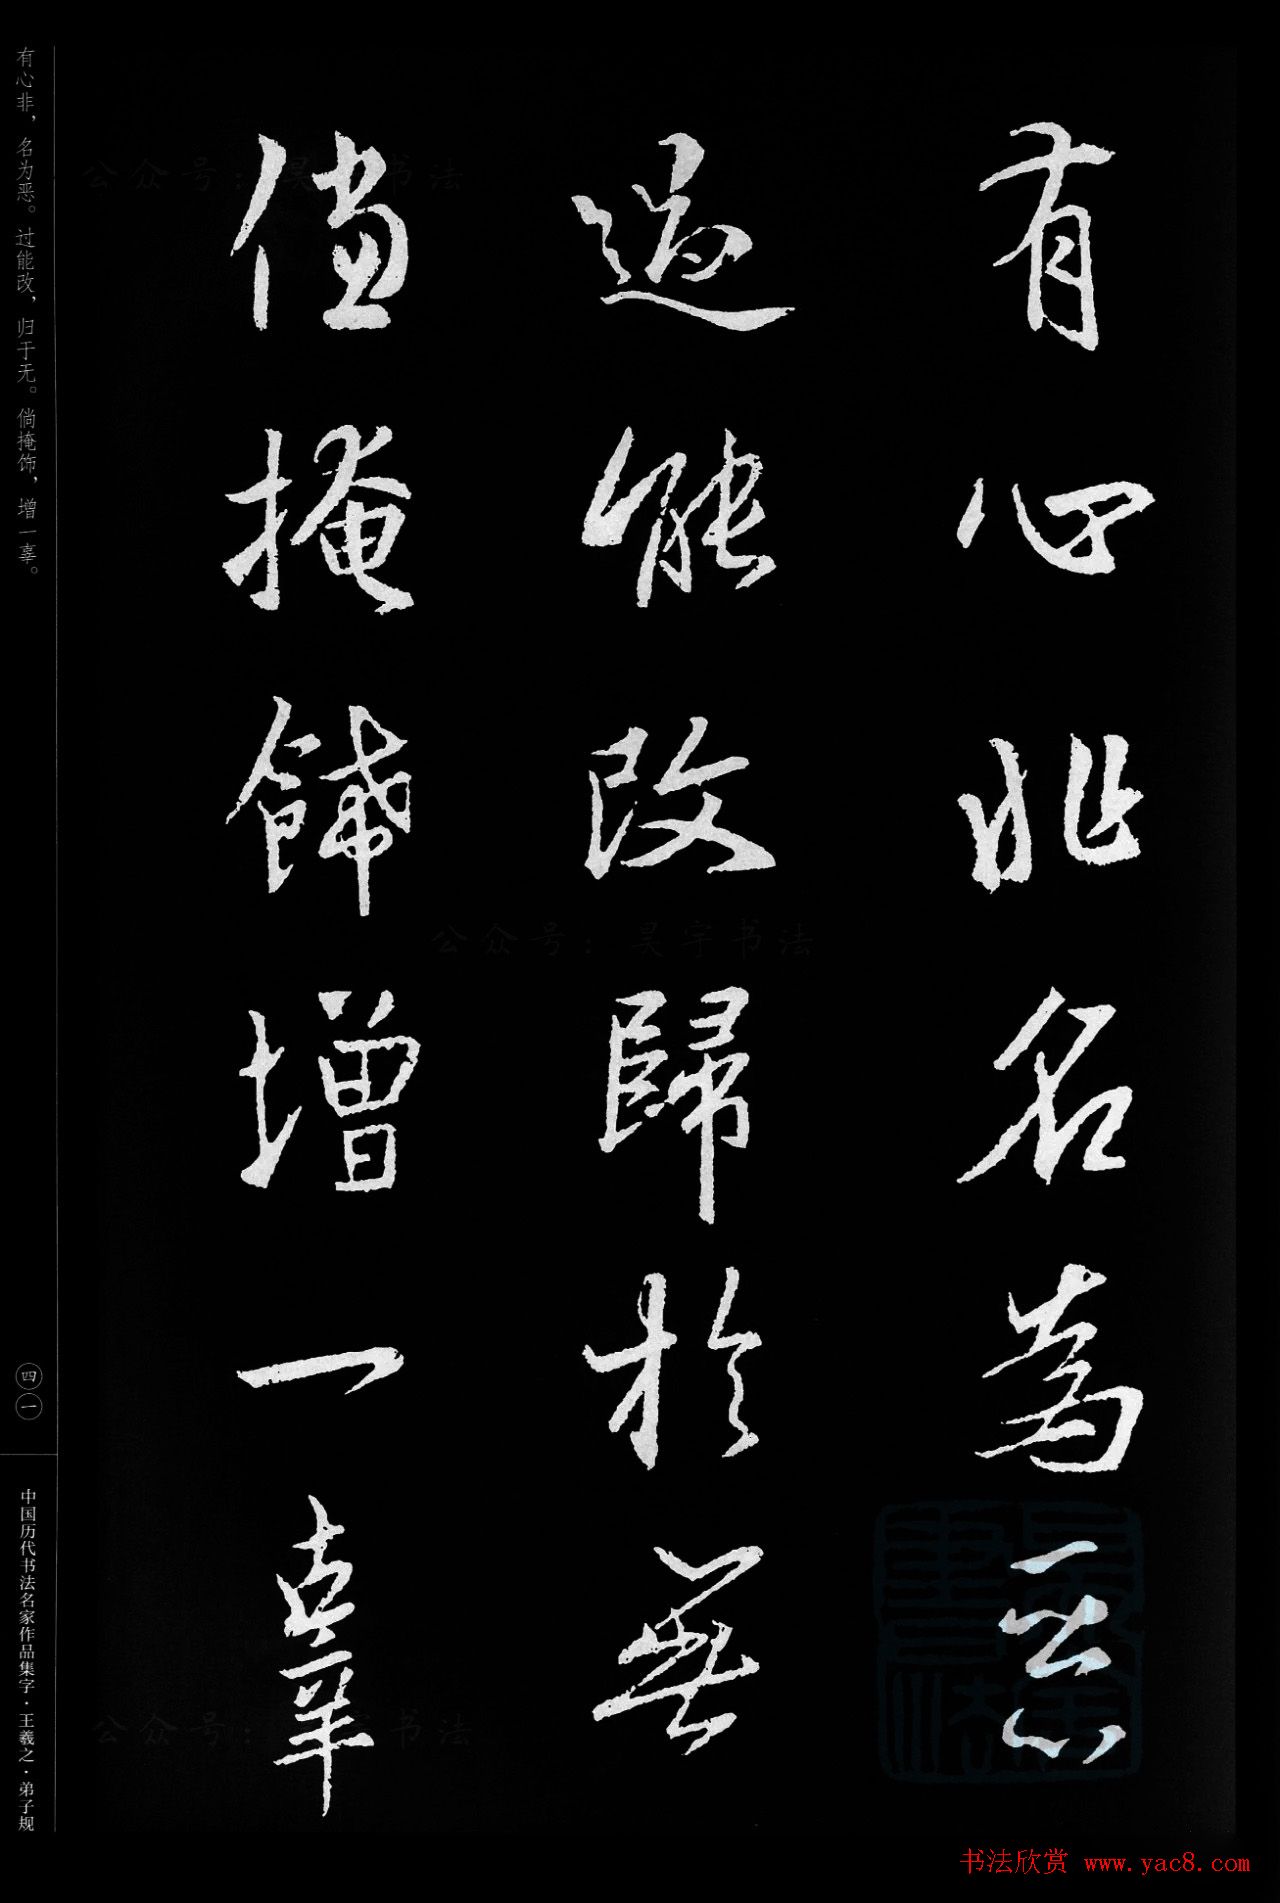 有心非名為惡
過能改歸於無
倘掩飾增一辜
有心非，名为恶。过能改，归于无。倘掩饰，增一辜。
四一
中国历代书法名家作品集字·王羲之·弟子规
公众号：昊宇书法
公众号：昊宇书法
公众号：昊宇书法
书法欣赏 www.yac8.com